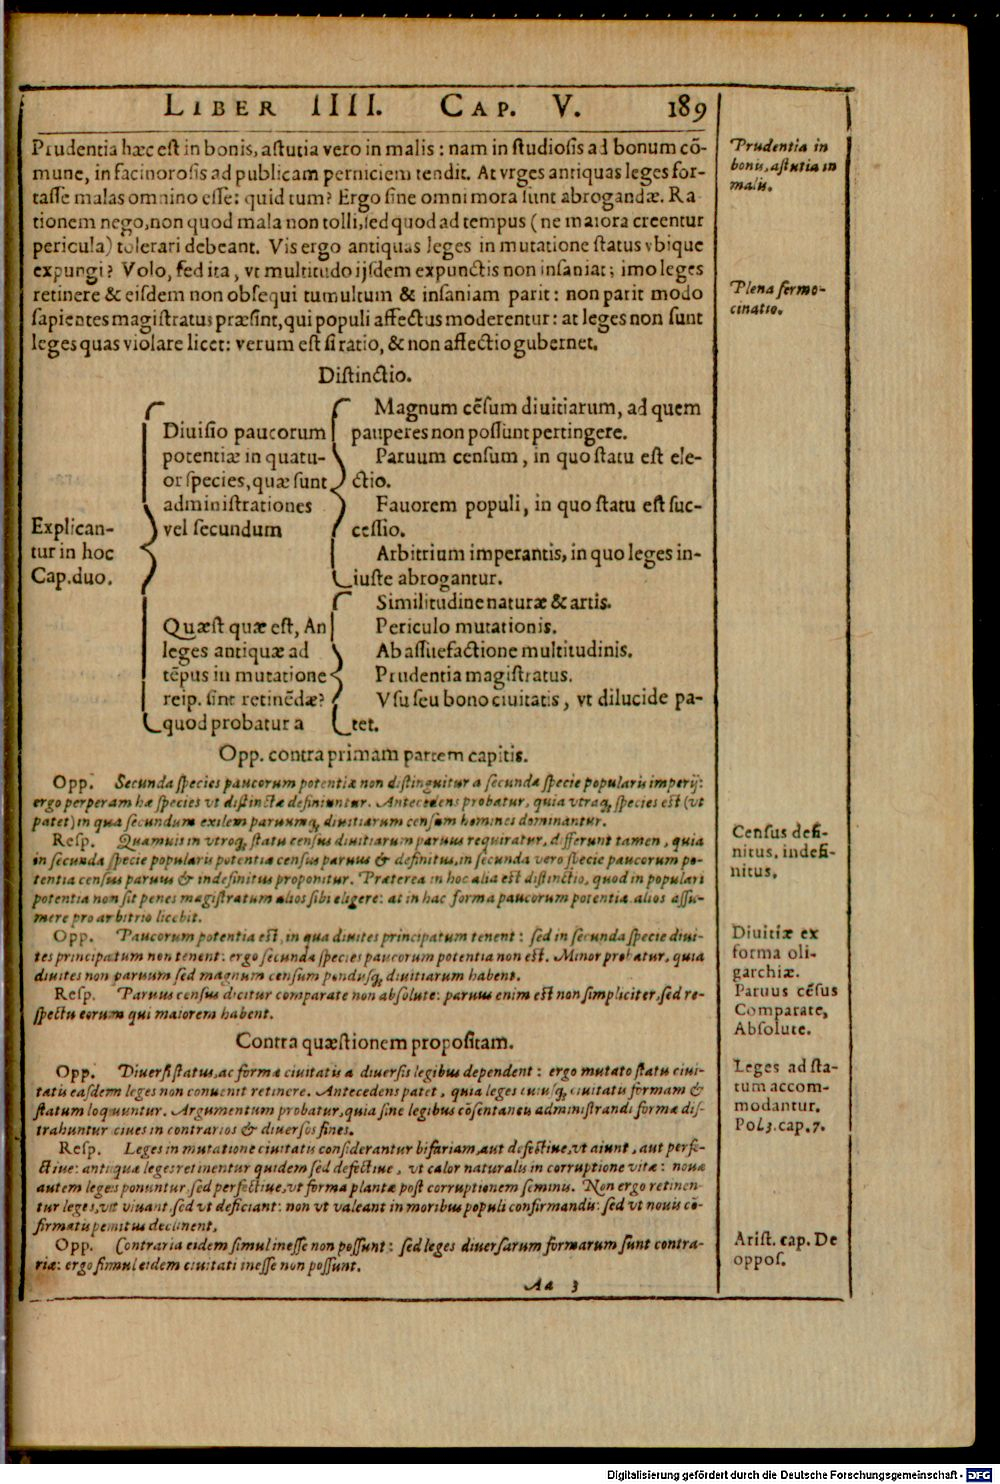 LIBER IIII. CAP. V. 189
Prudentia hæc est in bonis, astutia vero in malis : nam in studiosis ad bonum cō-
mune, in facinorosis ad publicam perniciem tendit. At vrges antiquas leges for-
tasse malas omnino esse: quid tum? Ergo sine omni mora sunt abrogandæ. Ra
tionem nego, non quod mala non tolli, sed quod ad tempus (ne maiora creentur
pericula) tolerari debeant. Vis ergo antiquas leges in mutatione status vbique
expungi? Volo, sed ita, vt multitudo ijsdem expunctis non insaniat; imo leges
retinere & eisdem non obsequi tumultum & insaniam parit: non parit modo
sapientes magistratus præsint, qui populi affectus moderentur: at leges non sunt
leges quas violare licet: verum est si ratio, & non affectio gubernet.
Prudentia in
bonis, astutia in
malis.
Plena sermo-
cinatio.
Distinctio.
Explican-
tur in hoc
Cap. duo.
Diuisio paucorum
potentiæ in quatu-
or species, quæ sunt
administrationes
vel secundum
Magnum cēsum diuitiarum, ad quem
pauperes non possunt pertingere.
Paruum censum, in quo statu est ele-
ctio.
Fauorem populi, in quo statu est suc-
cessio.
Arbitrium imperantis, in quo leges in-
iuste abrogantur.
Quæst quæ est, An
leges antiquæ ad
tēpus in mutatione
reip. sint retinēdæ?
quod probatur a
Similitudine naturæ & artis.
Periculo mutationis.
Ab assuefactione multitudinis.
Prudentia magistratus.
Vsu seu bono ciuitatis, vt dilucide pa-
tet.
Opp. contra primam partem capitis.
Opp. Secunda species paucorum potentiæ non distinguitur a secunda specie popularis imperij:
ergo perperam hæ species vt distinctæ definiuntur. Antecedens probatur, quia vtraq; species est (vt
patet) in qua secundum exilem paruumq; diuitiarum censum homines dominantur.
Resp. Quamuis in vtroq; statu census diuitiarum paruus requiratur, differunt tamen, quia
in secunda specie popularis potentiæ census paruus & definitus, in secunda vero specie paucorum po-
tentiæ census paruus & indefinitus proponitur. Præterea in hoc alia est distinctio, quod in populari
potentia non sit penes magistratum alios sibi eligere: at in hac forma paucorum potentiæ alios assu-
mere pro arbitrio licebit.
Opp. Paucorum potentia est, in qua diuites principatum tenent: sed in secunda specie diui-
tes principatum non tenent: ergo secunda species paucorum potentia non est. Minor probatur, quia
diuites non paruum sed magnum censum pondusq; diuitiarum habent.
Resp. Paruus census dicitur comparate non absolute: paruus enim est non simpliciter, sed re-
spectu eorum qui maiorem habent.
Census defi-
nitus, indefi-
nitus.
Diuitiæ ex
forma oli-
garchiæ.
Paruus cēsus
Comparate,
Absolute.
Contra quæstionem propositam.
Opp. Diuersi status, ac formæ ciuitatis a diuersis legibus dependent: ergo mutato statu ciui-
tatis easdem leges non conuenit retinere. Antecedens patet, quia leges cuiusq; ciuitatis formam &
statum loquuntur. Argumentum probatur, quia sine legibus cōsentaneis administrandi formæ dis-
trahuntur ciues in contrarios & diuersos fines.
Resp. Leges in mutatione ciuitatis considerantur bifariam, aut defectiue, vt aiunt, aut perfe-
ctiue: antiquæ leges retinentur quidem sed defectiue, vt calor naturalis in corruptione vitæ: nouæ
autem leges ponuntur, sed perfectiue, vt forma plantæ post corruptionem seminis. Non ergo retinen
tur leges, vt viuant, sed vt deficiant: non vt valeant in moribus populi confirmandis: sed vt nouis cō-
firmatis penitus declinent.
Opp. Contraria eidem simul inesse non possunt: sed leges diuersarum formarum sunt contra-
riæ: ergo simul eidem ciuitati inesse non possunt.
Leges ad sta-
tum accom-
modantur.
Pol 3. cap. 7.
Arist. cap. De
oppos.
Aa 3
Digitalisierung gefördert durch die Deutsche Forschungsgemeinschaft - DFG